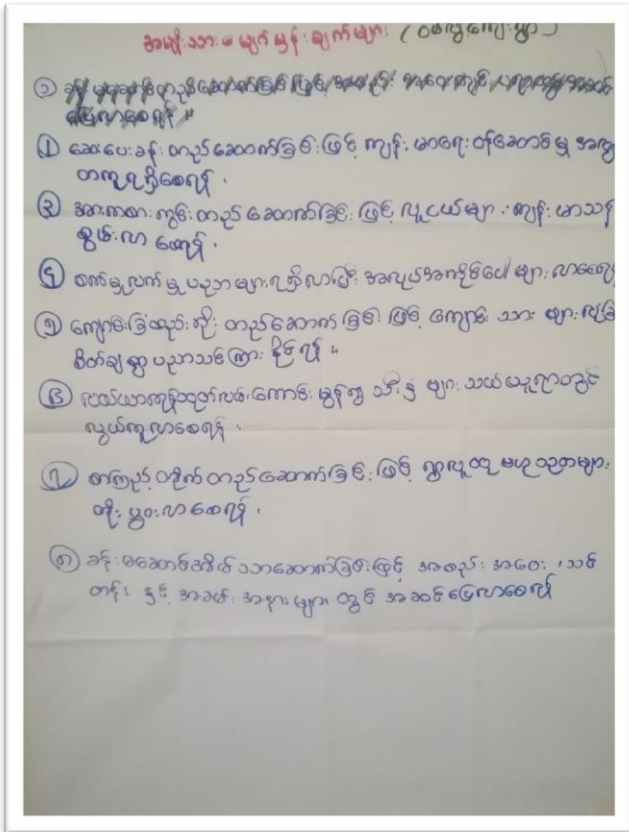 အမျိုးသားမျှော်မှန်းချက်များ (ဝဲကျွဲကျေးရွာ)
① ဆေးပေးခန်း တည်ဆောက်ခြင်းဖြင့် ကျန်းမာရေးဝန်ဆောင်မှု အလွ
တကူရရှိစေရန်.
၃ အားကစားကွင်းတည်ဆောက်ခြင်းဖြင့် လူငယ်များ ကျန်းမာသန်
စွမ်းလာစေရန်.
၄ စက်မှုလက်မှုပညာများရရှိလာပြီး အလုပ်အကိုင်ပေါများလာစေရ
၅ ကျောင်းခြံစည်းရိုး တည်ဆောက်ခြင်းဖြင့် ကျောင်းသားများလုံခြုံ
စိတ်ချစွာ ပညာသင်ကြားနိုင်ရန်။
၆ လယ်ယာကုန်ထုတ်လမ်းကောင်းမွန်၍ သီးနှံများ သယ်ယူရာတွင်
လွယ်ကူလာစေရန်.
၇ စာကြည့်တိုက်တည်ဆောက်ခြင်းဖြင့် ရွာလူထု ဗဟုသုတများ
တိုးပွားလာစေရန်.
၈ ခန်းမဆောင်အိမ်သာဆောက်ခြင်းဖြင့် အစည်းအဝေး၊ သင်
တန်း နှင့် အခမ်းအနားများတွင် အဆင်ပြေလာစေရန်